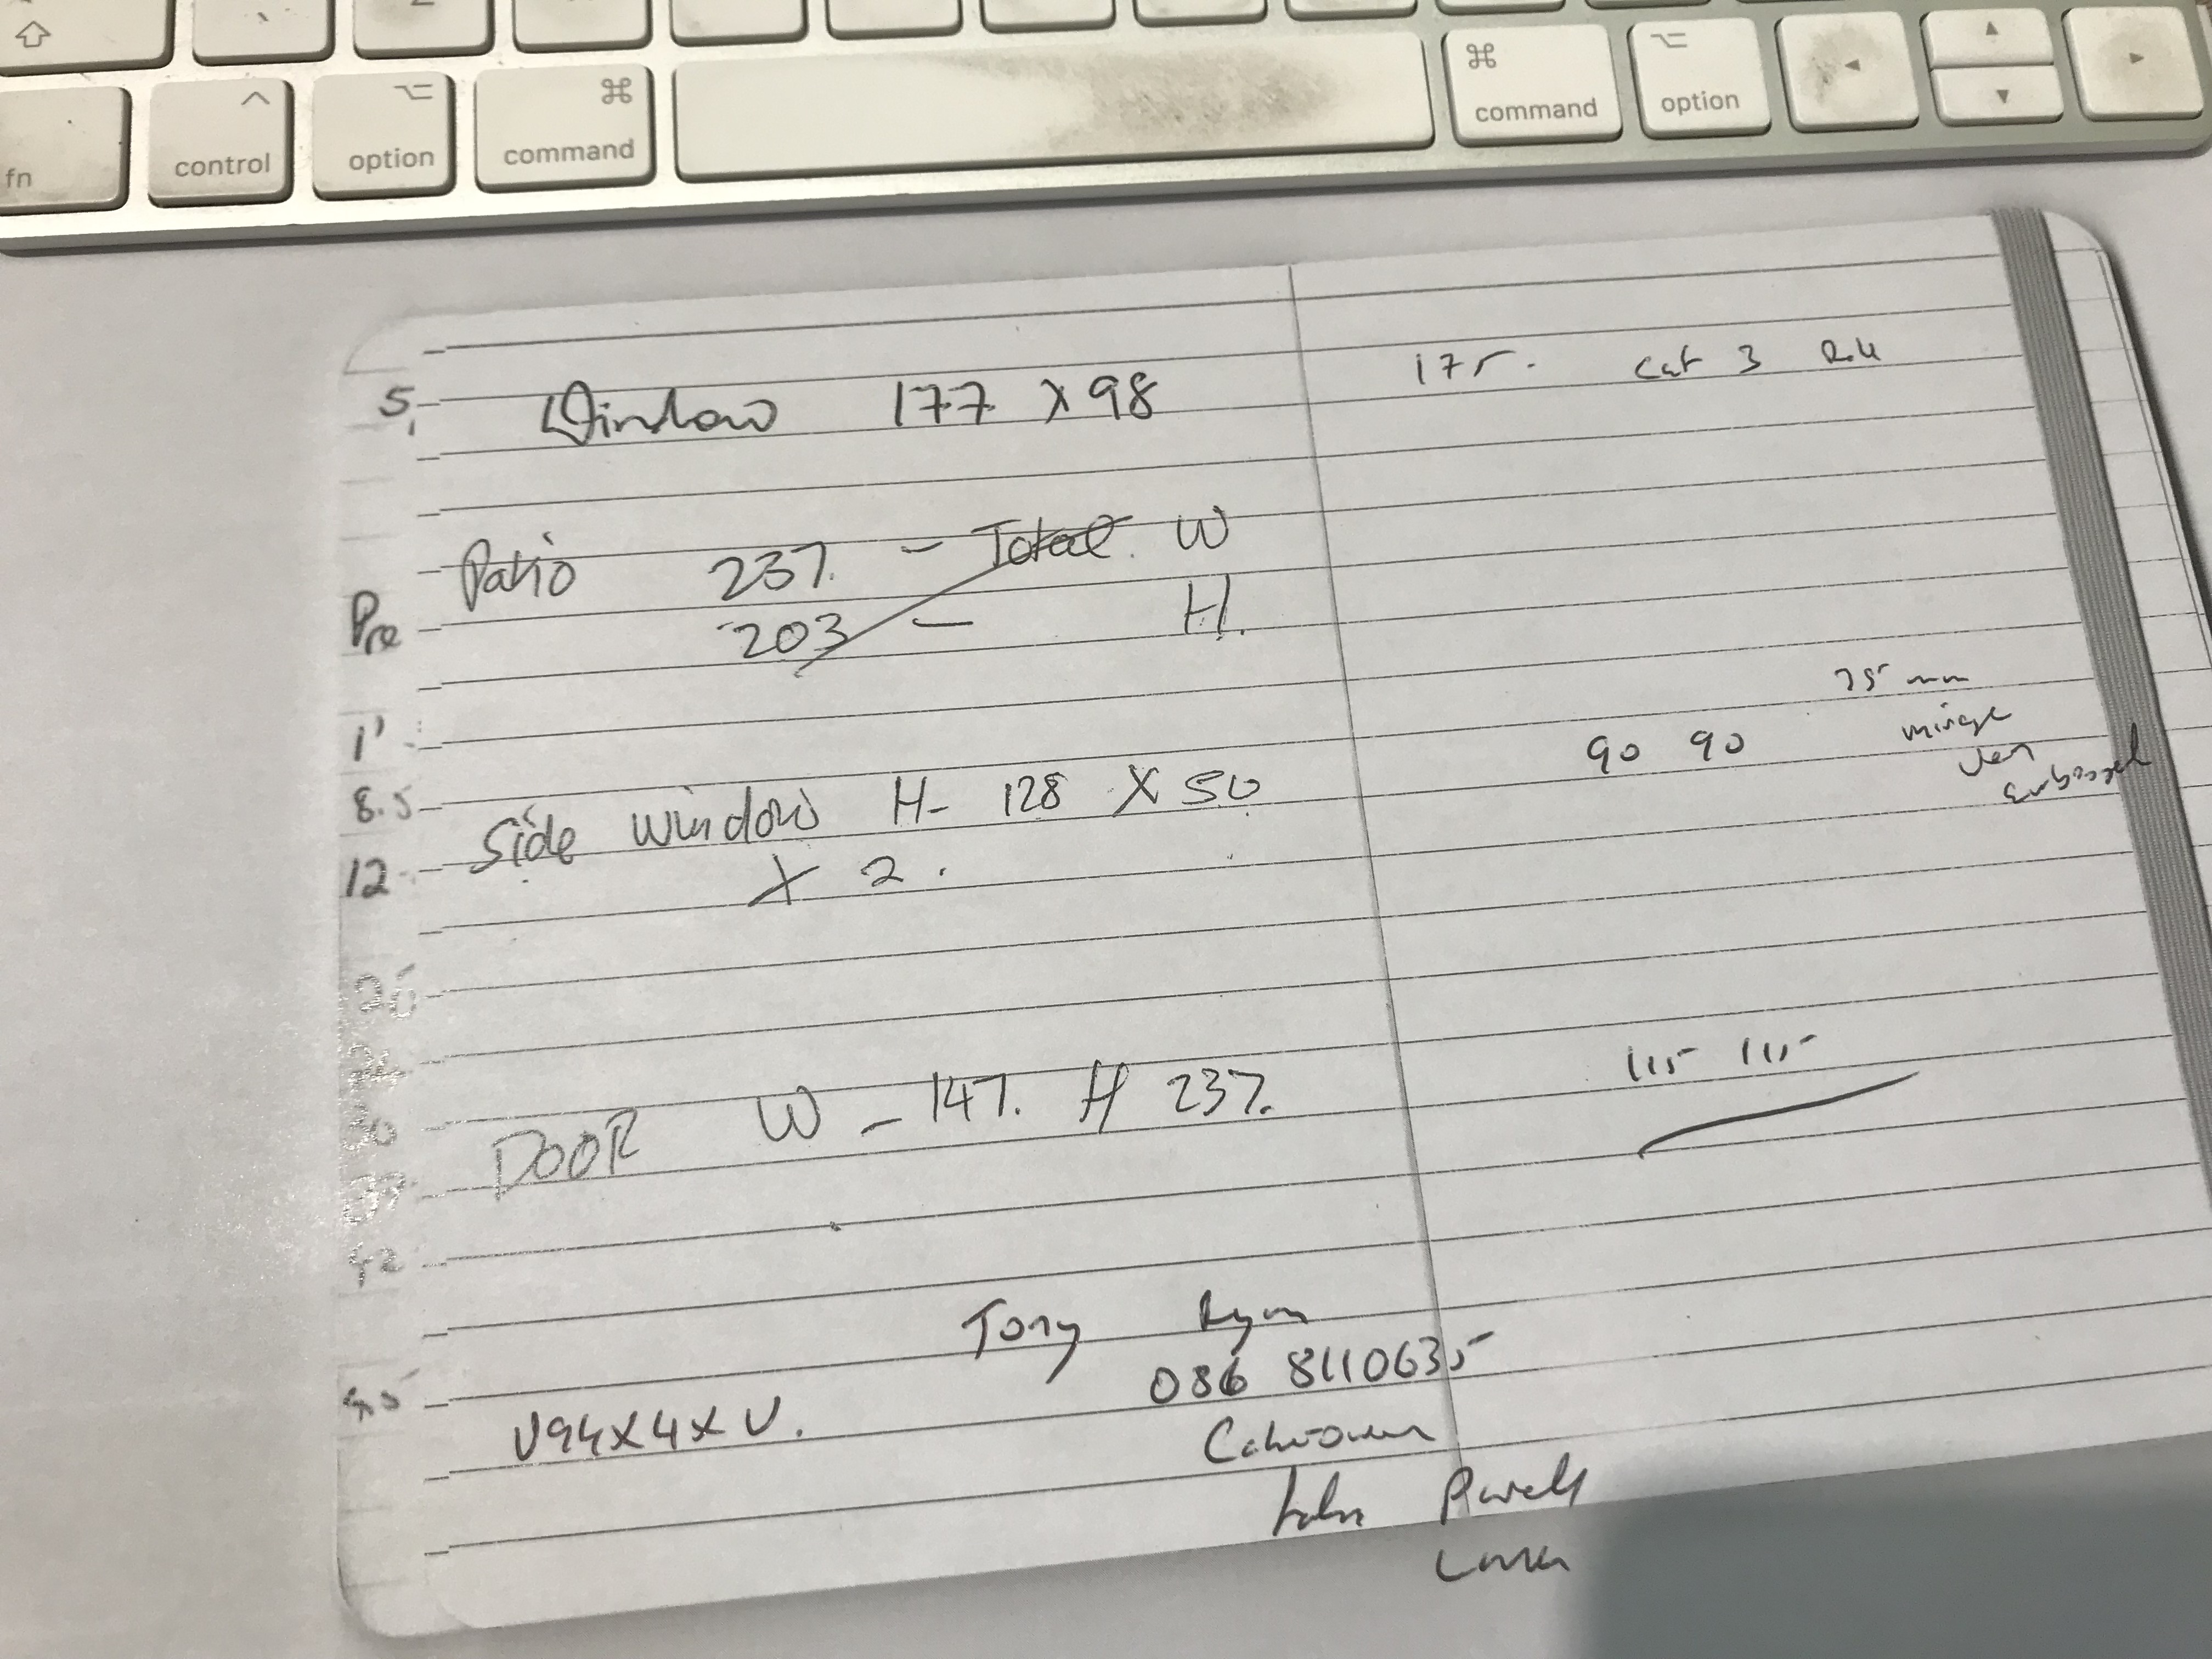 fn control option command command option
Window 177 X 98
175. Cat 3 Roll
Patio 237. - Total. W
203 - H.
Pre
75 mm
90 90
1'
8.5
Side window H- 128 X 50
embossed
12
X 2.
115 115
DOOR W - 147. H 237.
42
Tony Ryan
086 8110635
V94X4XV.
John Powell